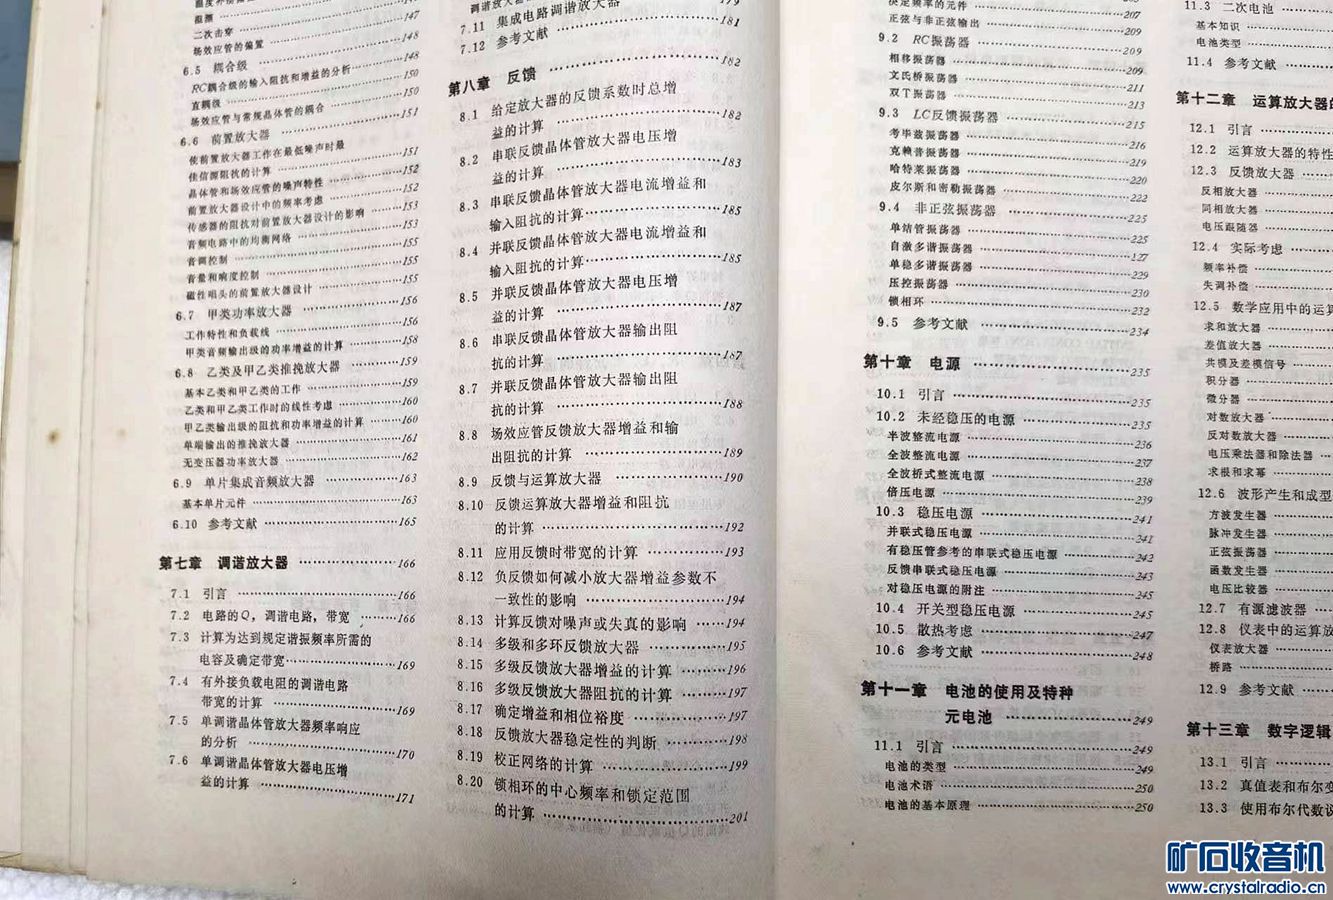 阻塞 147
二次击穿 147
场效应管的偏置 148
6.5 耦合级 148
RC耦合级的输入阻抗和增益的分析 150
直耦级 150
场效应管与常规晶体管的耦合 151
6.6 前置放大器
使前置放大器工作在最低噪声时最
佳信源阻抗的计算 151
晶体管和场效应管的噪声特性 152
前置放大器设计中的频率考虑 152
传感器的阻抗对前置放大器设计的影响 153
音频电路中的均衡网络 153
音调控制 155
音量和响度控制 155
磁性唱头的前置放大器设计 155
6.7 甲类功率放大器 156
工作特性和负载线 156
甲类音频输出级的功率增益的计算 158
6.8 乙类及甲乙类推挽放大器 159
基本乙类和甲乙类的工作 159
乙类和甲乙类工作时的线性考虑 160
甲乙类输出级的阻抗和功率增益的计算 160
单端输出的推挽放大器 161
无变压器功率放大器 162
6.9 单片集成音频放大器 163
基本单片元件 163
6.10 参考文献 165
第七章 调谐放大器 166
7.1 引言 166
7.2 电路的Q，调谐电路，带宽 166
7.3 计算为达到规定谐振频率所需的
电容及确定带宽 169
7.4 有外接负载电阻的调谐电路
带宽的计算 169
7.5 单调谐晶体管放大器频率响应
的分析 170
7.6 单调谐晶体管放大器电压增
益的计算 171
7.11 集成电路调谐放大器
7.12 参考文献 181
第八章 反馈 182
8.1 给定放大器的反馈系数时总增
益的计算 182
8.2 串联反馈晶体管放大器电压增
益的计算 183
8.3 串联反馈晶体管放大器电流增益和
输入阻抗的计算 185
8.4 并联反馈晶体管放大器电流增益和
输入阻抗的计算 185
8.5 并联反馈晶体管放大器电压增
益的计算 187
8.6 串联反馈晶体管放大器输出阻
抗的计算 187
8.7 并联反馈晶体管放大器输出阻
抗的计算 188
8.8 场效应管反馈放大器增益和输
出阻抗的计算 189
8.9 反馈与运算放大器 190
8.10 反馈运算放大器增益和阻抗
的计算 192
8.11 应用反馈时带宽的计算 193
8.12 负反馈如何减小放大器增益参数不
一致性的影响 194
8.13 计算反馈对噪声或失真的影响 194
8.14 多级和多环反馈放大器 195
8.15 多级反馈放大器增益的计算 196
8.16 多级反馈放大器阻抗的计算 197
8.17 确定增益和相位裕度 197
8.18 反馈放大器稳定性的判断 198
8.19 校正网络的计算 199
8.20 锁相环的中心频率和锁定范围
的计算 201
决定频率的元件 207
正弦与非正弦输出 209
9.2 RC振荡器 209
相移振荡器 209
文氏桥振荡器 211
双T振荡器 213
9.3 LC反馈振荡器 215
考毕兹振荡器 216
克赖普振荡器 219
哈特莱振荡器 220
皮尔斯和密勒振荡器 222
9.4 非正弦振荡器 225
单结管振荡器 225
自激多谐振荡器 127
单稳多谐振荡器 229
压控振荡器 230
锁相环 232
9.5 参考文献 234
第十章 电源 235
10.1 引言 235
10.2 未经稳压的电源 235
半波整流电源 236
全波整流电源 237
全波桥式整流电源 238
倍压电源 239
10.3 稳压电源 241
并联式稳压电源 241
有稳压管参考的串联式稳压电源 242
反馈串联式稳压电源 243
对稳压电源的附注 245
10.4 开关型稳压电源 245
10.5 散热考虑 247
10.6 参考文献 248
第十一章 电池的使用及特种
元电池 249
11.1 引言 249
电池的类型 249
电池术语 250
电池的基本原理 250
11.3 二次电池
基本知识
电池类型
11.4 参考文献
第十二章 运算放大器的
12.1 引言
12.2 运算放大器的特性
12.3 反馈放大器
反相放大器
同相放大器
电压跟随器
12.4 实际考虑
频率补偿
失调补偿
12.5 数学应用中的运算
求和放大器
差值放大器
共模及差模信号
积分器
微分器
对数放大器
反对数放大器
电压乘法器和除法器
求根和求幂
12.6 波形产生和成型
方波发生器
脉冲发生器
正弦振荡器
函数发生器
电压比较器
12.7 有源滤波器
12.8 仪表中的运算放
仪表放大器
桥路
12.9 参考文献
第十三章 数字逻辑
13.1 引言
13.2 真值表和布尔变
13.3 使用布尔代数设
矿石收音机
www.crystalradio.cn